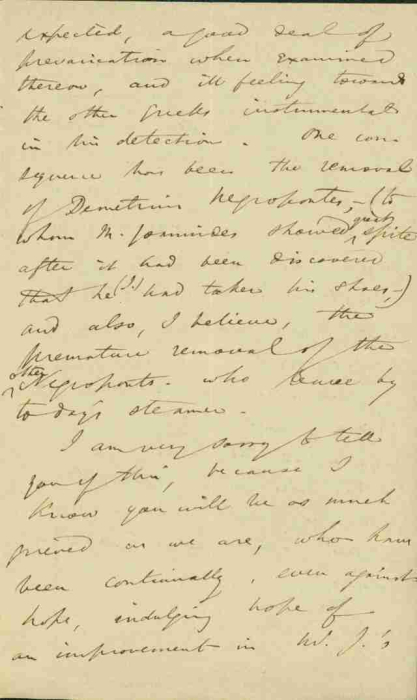 expected, a good deal of
prevarication when examined
thereon, and ill feeling towards
the other Greeks instrumental
in his detection. One con-
sequence has been the removal
of Demetrius Negropontes, - (to
whom M. Joannides showed great spite
after it had been discovered
that he (J) had taken his shoes,)
and also, I believe, the
premature removal of the
other Negroponts - who leave by
to day's steamer.
I am very sorry to tell
you of this, because I
know you will be as much
grieved as we are, who have
been continually, even against
hope, indulging hope of
an improvement in M. J.'s